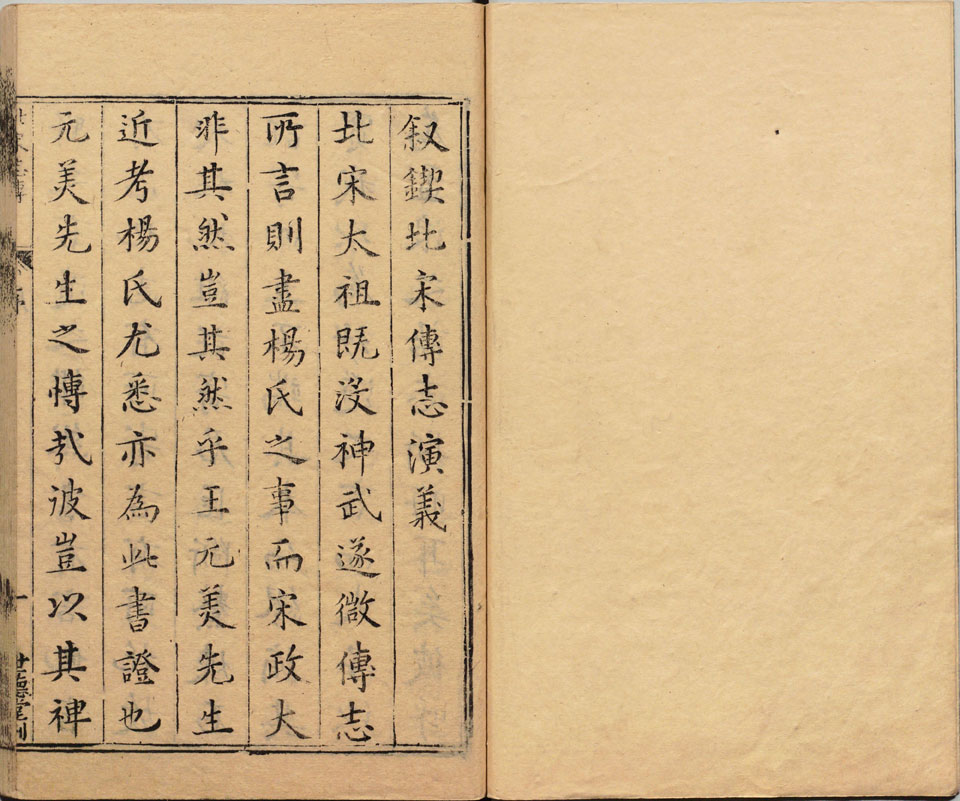 叙鍥北宋傳志演義
北宋太祖既沒神武遂微傳志
所言則盡楊氏之事而宋政大
非其然豈其然乎王元美先生
近考楊氏尤悉亦為此書證也
元美先生之慱㢤彼豈以其裨
序
一
世德堂刊